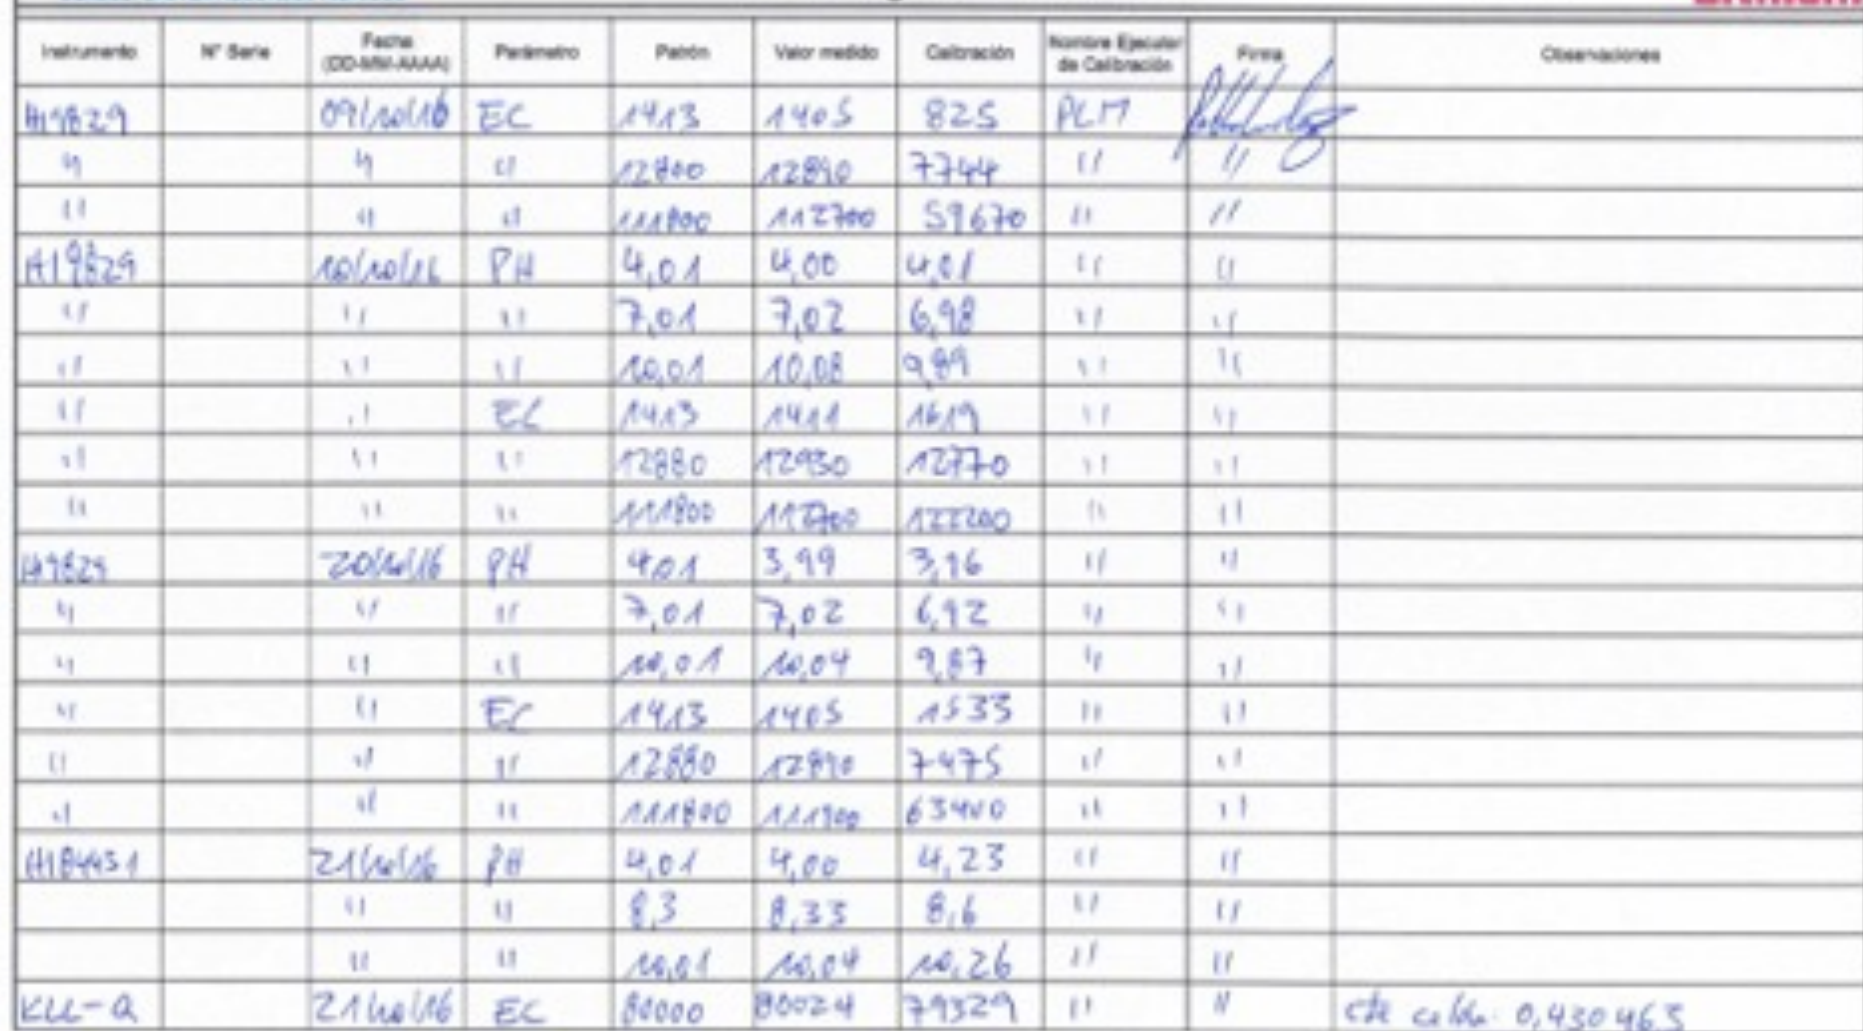 Instrumento N° Serie Fecha (DD-MM-AAAA) Parámetro Patrón Valor medido Calibración Nombre Ejecutor de Calibración Firma Observaciones
HI9829 09/10/16 EC 1413 1405 825 PLM
" " " 12800 12890 7744 " "
" " " 111800 112700 59670 " "
HI9829 10/10/16 PH 4,01 4,00 4,01 " "
" " " 7,01 7,02 6,98 " "
" " " 10,01 10,08 9,89 " "
" " EC 1413 1411 1619 " "
" " " 12880 12930 12770 " "
" " " 111800 112700 122200 " "
HI9829 20/10/16 PH 4,01 3,99 3,96 " "
" " " 7,01 7,02 6,92 " "
" " " 10,01 10,04 9,87 " "
" " EC 1413 1405 1533 " "
" " " 12880 12890 7475 " "
" " " 111800 111900 63400 " "
HI84431 21/10/16 PH 4,01 4,00 4,23 " "
" " 8,3 8,33 8,6 " "
" " 10,01 10,04 10,26 " "
KLL-Q 21/10/16 EC 80000 80024 79329 " " cte celda: 0,430463